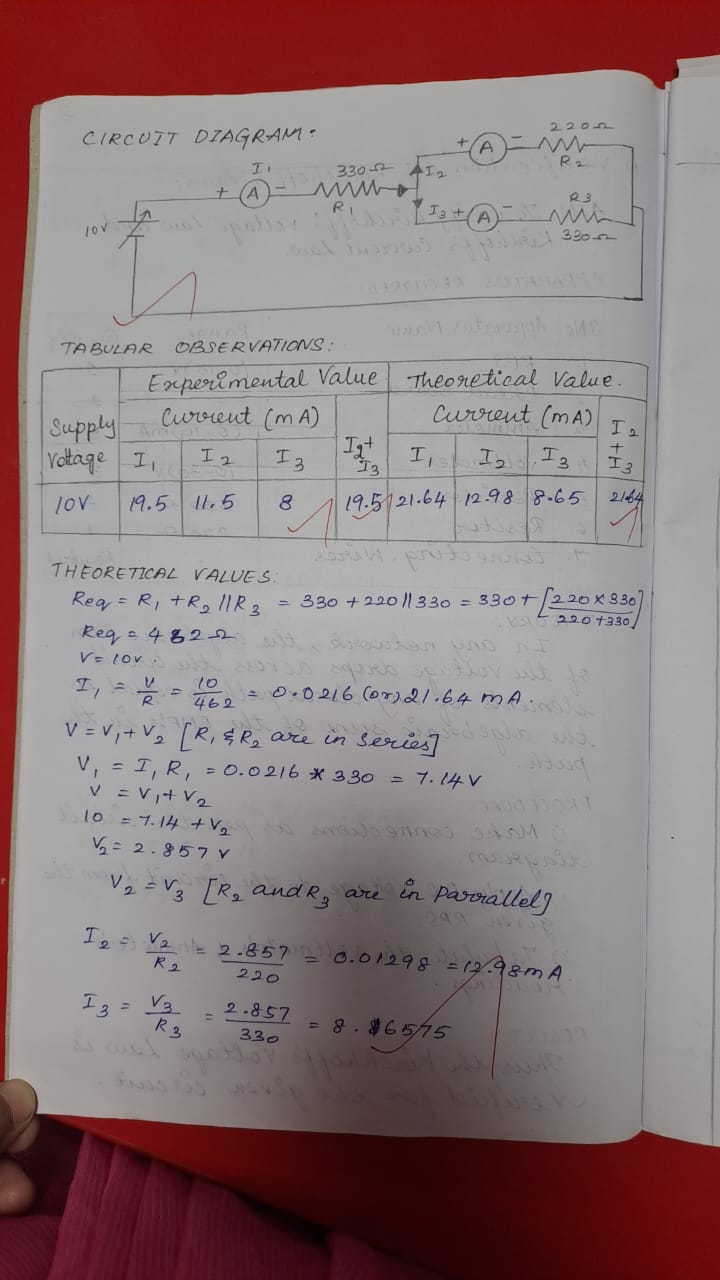 CIRCUIT DIAGRAM:
220Ω
+ A -
R2
I1
330Ω
I2
+ A -
R1
R3
I3 + A -
10V
330Ω
TABULAR OBSERVATIONS:
Experimental Value Theoretical Value.
Supply Voltage Current (mA) I2+I3 Current (mA) I2+I3
I1 I2 I3 I1 I2 I3
10V 19.5 11.5 8 19.5 21.64 12.98 8.65 21.64
THEORETICAL VALUES:
Req = R1 + R2 || R3 = 330 + 220 || 330 = 330 + [220 x 330 / 220 + 330]
Req = 462Ω
V = 10V.
I1 = V/R = 10/462 = 0.0216 (or) 21.64 mA.
V = V1 + V2 [R1 & R2 are in Series]
V1 = I1 R1 = 0.0216 * 330 = 7.14 V
V = V1 + V2
10 = 7.14 + V2
V2 = 2.857 V
V2 = V3 [R2 and R3 are in Parrallel]
I2 = V2/R2 = 2.857/220 = 0.01298 = 12.98 mA
I3 = V3/R3 = 2.857/330 = 8.6575